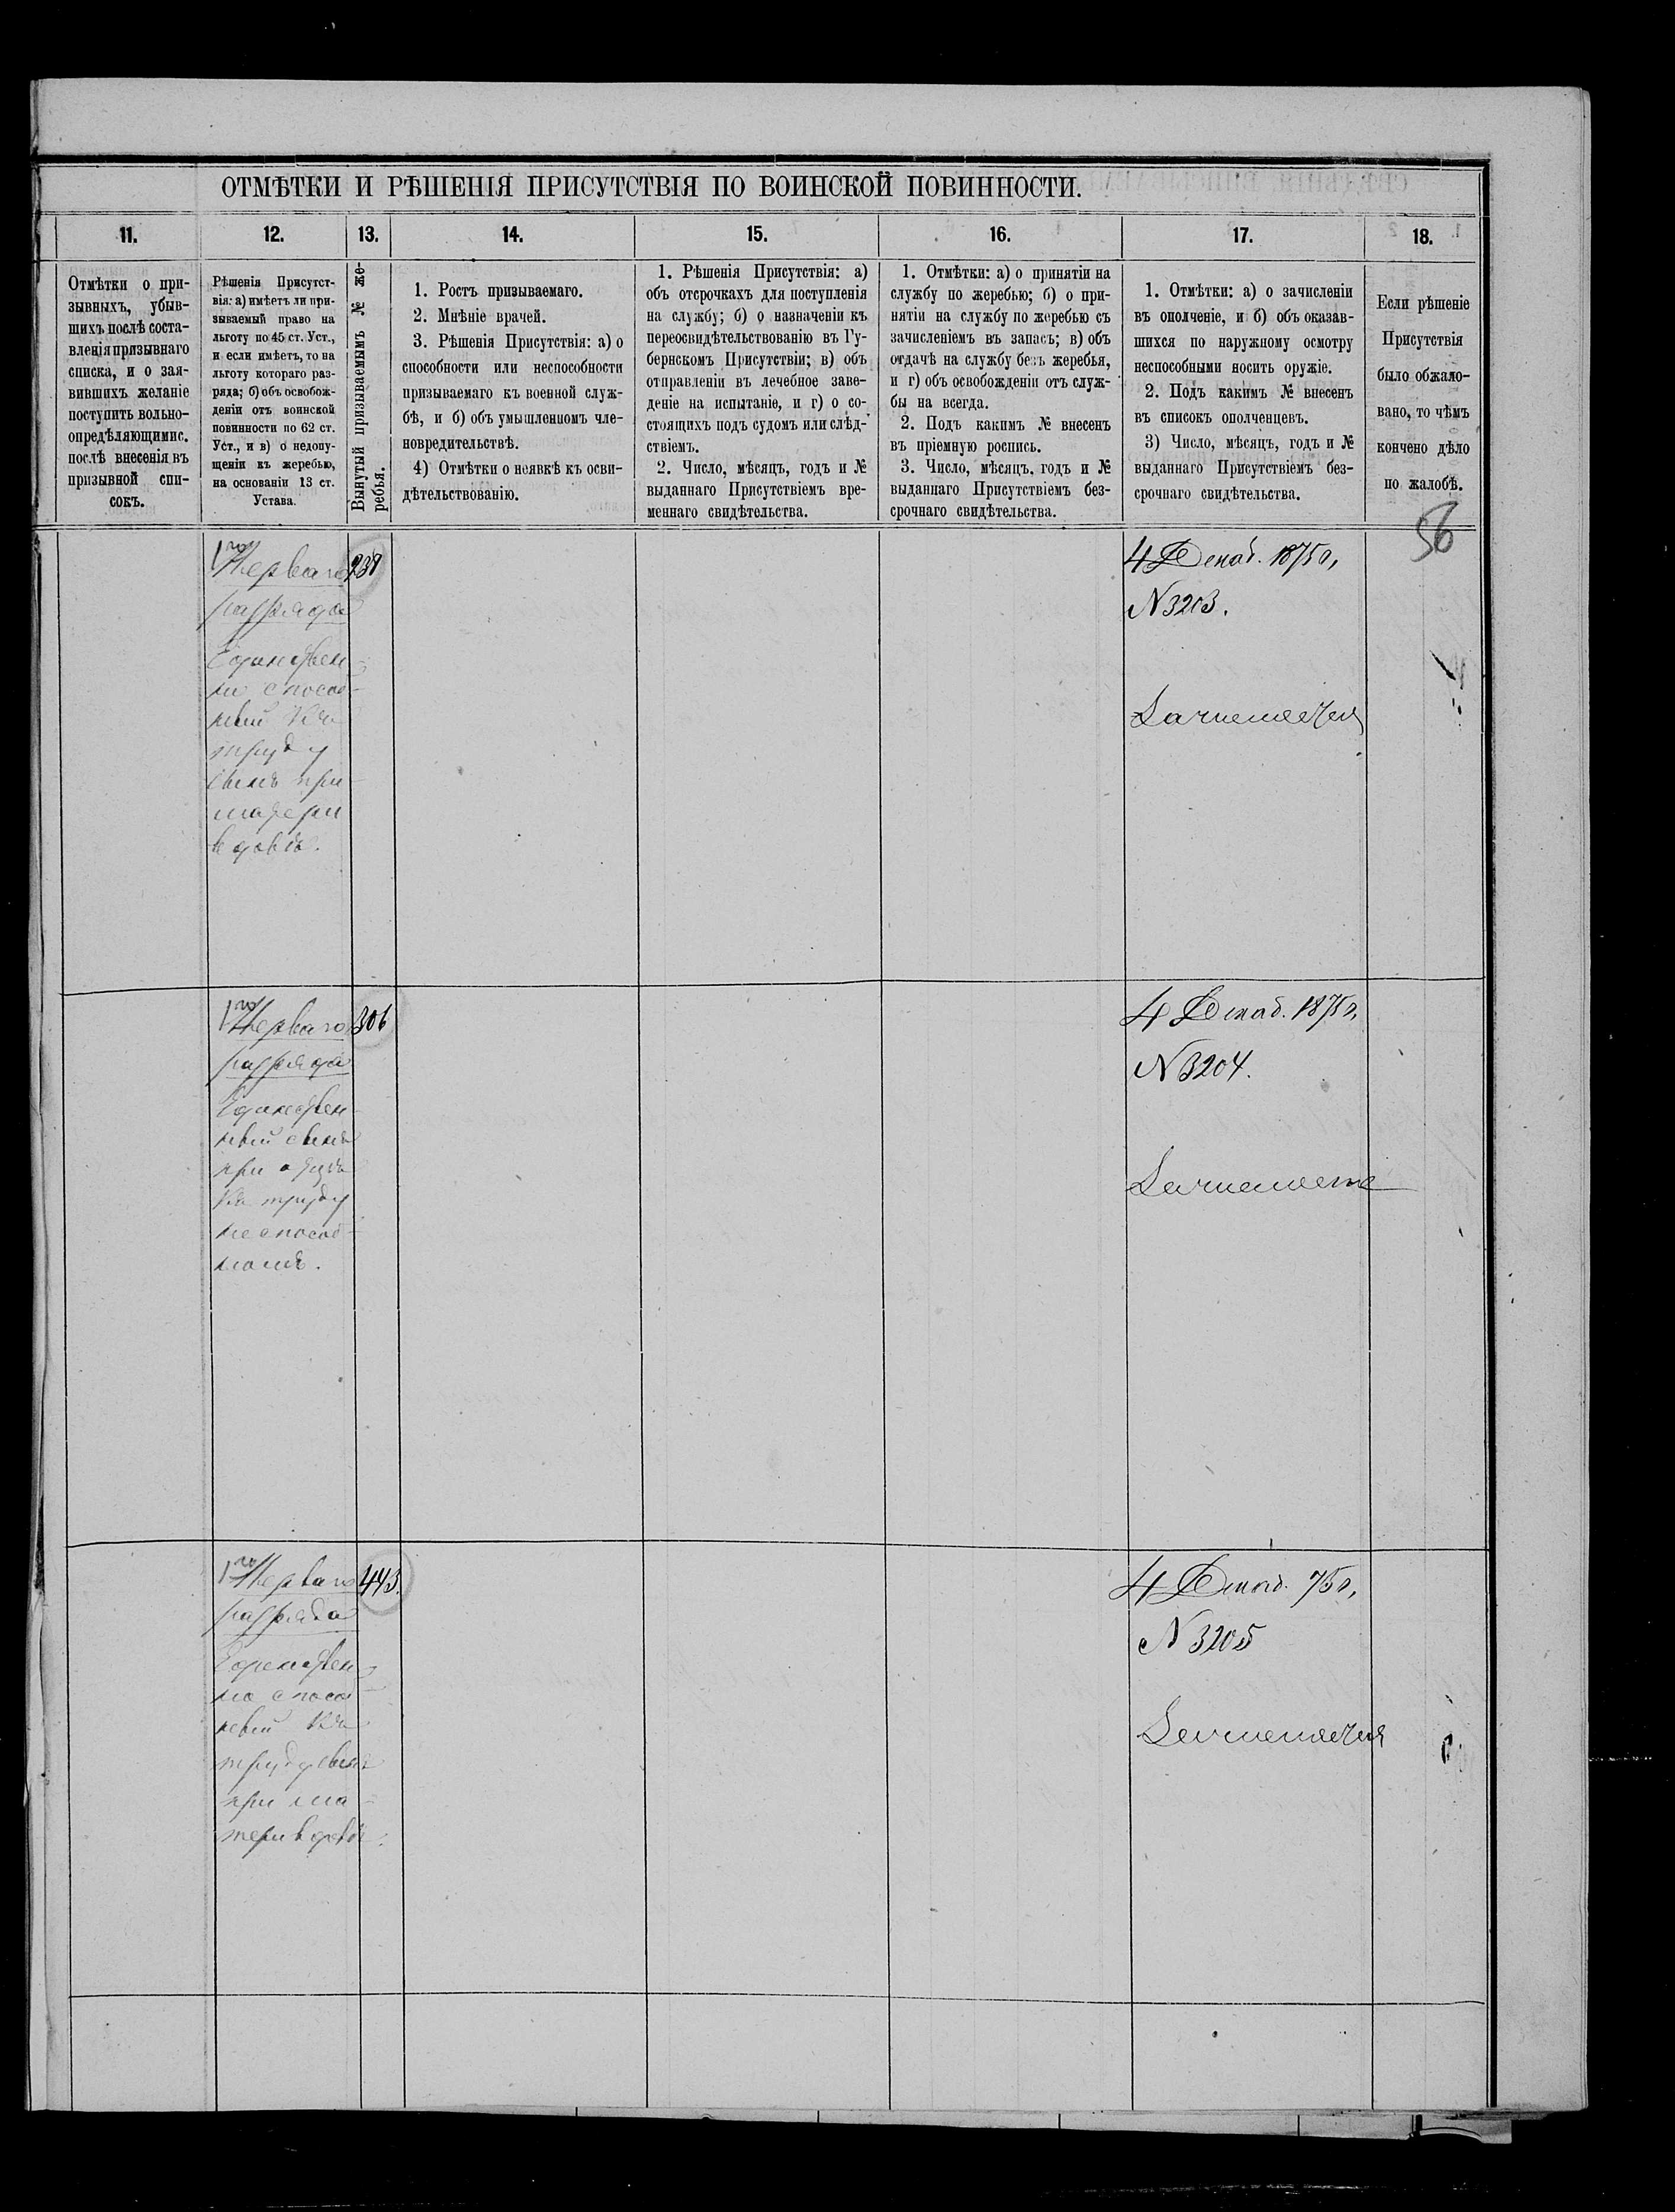 ОТМѢТКИ И РѢШЕНІЯ ПРИСУТСТВІЯ ПО ВОИНСКОЙ ПОВИННОСТИ.
11.
12.
13.
14.
15.
16.
17.
18.
Отмѣтки о при-
зывныхъ, убыв-
шихъ послѣ соста-
вленія призывнаго
списка, и о зая-
вившихъ желаніе
поступить вольно-
опредѣляющимис.
послѣ внесенія въ
призывной спи-
сокъ.
Рѣшенія Присутст-
вія: а) имѣетъ ли при-
зываемый право на
льготу по 45 ст. Уст.,
и если имѣетъ, то на
льготу котораго раз-
ряда; б) объ освобож-
деніи отъ воинской
повинности по 62 ст.
Уст., и в) о недопу-
щеніи къ жеребью,
на основаніи 13 ст.
Устава.
Вынутый призываемымъ № же-
ребья.
1. Ростъ призываемаго.
2. Мнѣніе врачей.
3. Рѣшенія Присутствія: а) о
способности или неспособности
призываемаго къ военной служ-
бѣ, и б) объ умышленномъ чле-
новредительствѣ.
4) Отмѣтки о неявкѣ къ осви-
дѣтельствованію.
1. Рѣшенія Присутствія: а)
объ отсрочкахъ для поступленія
на службу; б) о назначеніи къ
переосвидѣтельствованію въ Гу-
бернскомъ Присутствіи; в) объ
отправленіи въ лечебное заве-
деніе на испытаніе, и г) о со-
стоящихъ подъ судомъ или слѣд-
ствіемъ.
2. Число, мѣсяцъ, годъ и №
выданнаго Присутствіемъ вре-
меннаго свидѣтельства.
1. Отмѣтки: а) о принятіи на
службу по жеребью; б) о при-
нятіи на службу по жеребью съ
зачисленіемъ въ запасъ; в) объ
отдачѣ на службу безъ жеребья,
и г) объ освобожденіи отъ служ-
бы на всегда.
2. Подъ какимъ № внесенъ
въ пріемную роспись.
3. Число, мѣсяцъ, годъ и №
выданнаго Присутствіемъ без-
срочнаго свидѣтельства.
1. Отмѣтки: а) о зачисленіи
въ ополченіе, и б) объ оказав-
шихся по наружному осмотру
неспособными носить оружіе.
2. Подъ какимъ № внесенъ
въ списокъ ополченцевъ.
3) Число, мѣсяцъ, годъ и №
выданнаго Присутствіемъ без-
срочнаго свидѣтельства.
Если рѣшеніе
Присутствія
было обжало-
вано, то чѣмъ
кончено дѣло
по жалобѣ.
56
1го Перваго
разряда
Единствен-
но способ-
ный къ
труду
сынъ при
матери
вдовѣ.
4 Декаб. 1875 г.
N 3203.
1го Перваго
разряда
Единствен-
ный сынъ
при отцѣ
къ труду
неспособ-
номъ.
306
4 Декаб. 1875 г.
N 3204.
1го Перваго
разряда
Единствен-
но способ-
ный къ
труду сынъ
при ма-
тери вдовѣ.
443.
4 Декаб. 75 г.
N 3205